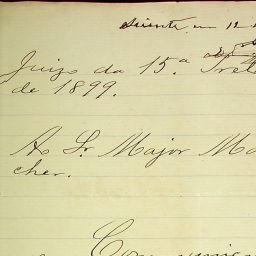 Sciente em 12
Juizo da 15.a Pret
de 1899.
Ao Sr. Major Ma
cher.
Communic